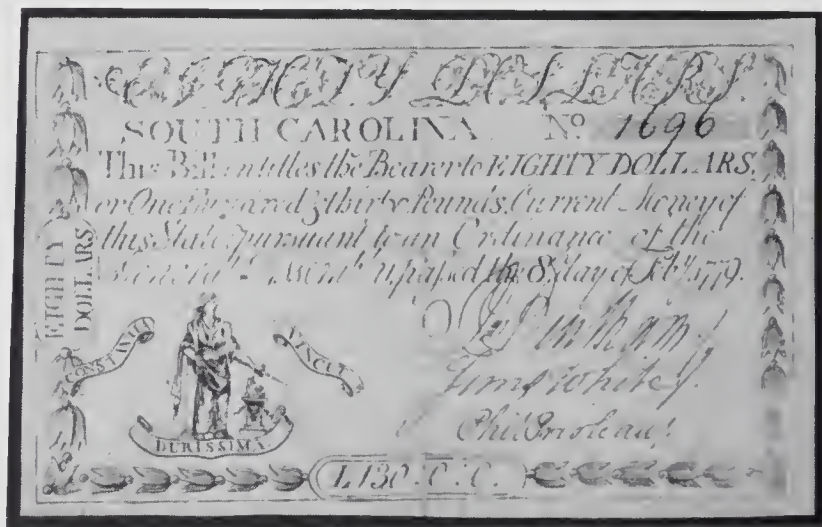 EIGHTY DOLLARS.
SOUTH CAROLINA. No. 1696
This Bill entitles the Bearer to EIGHTY DOLLARS,
or One Hundred & thirty Pounds, Current Money of
this State, pursuant to an Ordinance of the
General Assembly passed the 8th day of Feby. 1779.
EIGHTY
DOLLARS
CONSTANTIA
VINCIT
DURISSIMA.
Sims White
Phil Prioleau
L130. C. C.